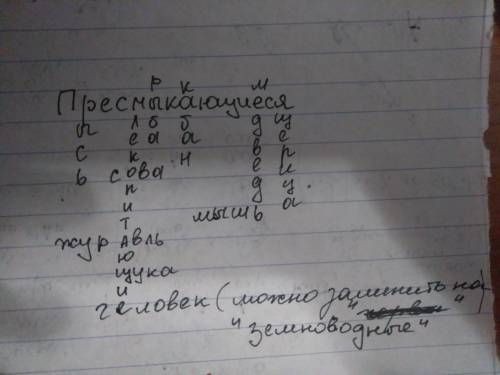 р к м
Пресмыкающиеся
ы л б б д щ
с е а а в е
к н е р
ь сова и
н д ц
и мышь а
т
журавль
ю
щука
и
человек (можно заменить на)
"земноводные"